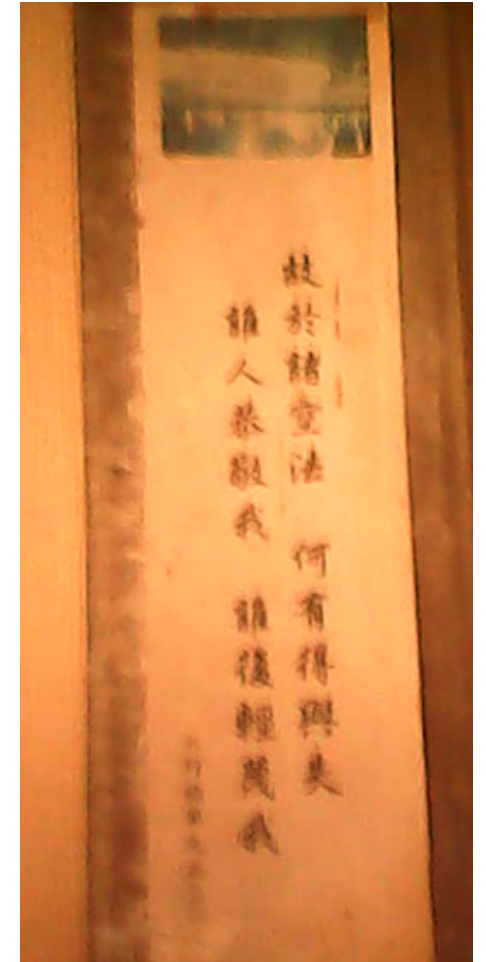 故於諸空法 何有得與失
誰人恭敬我 誰復輕蔑我